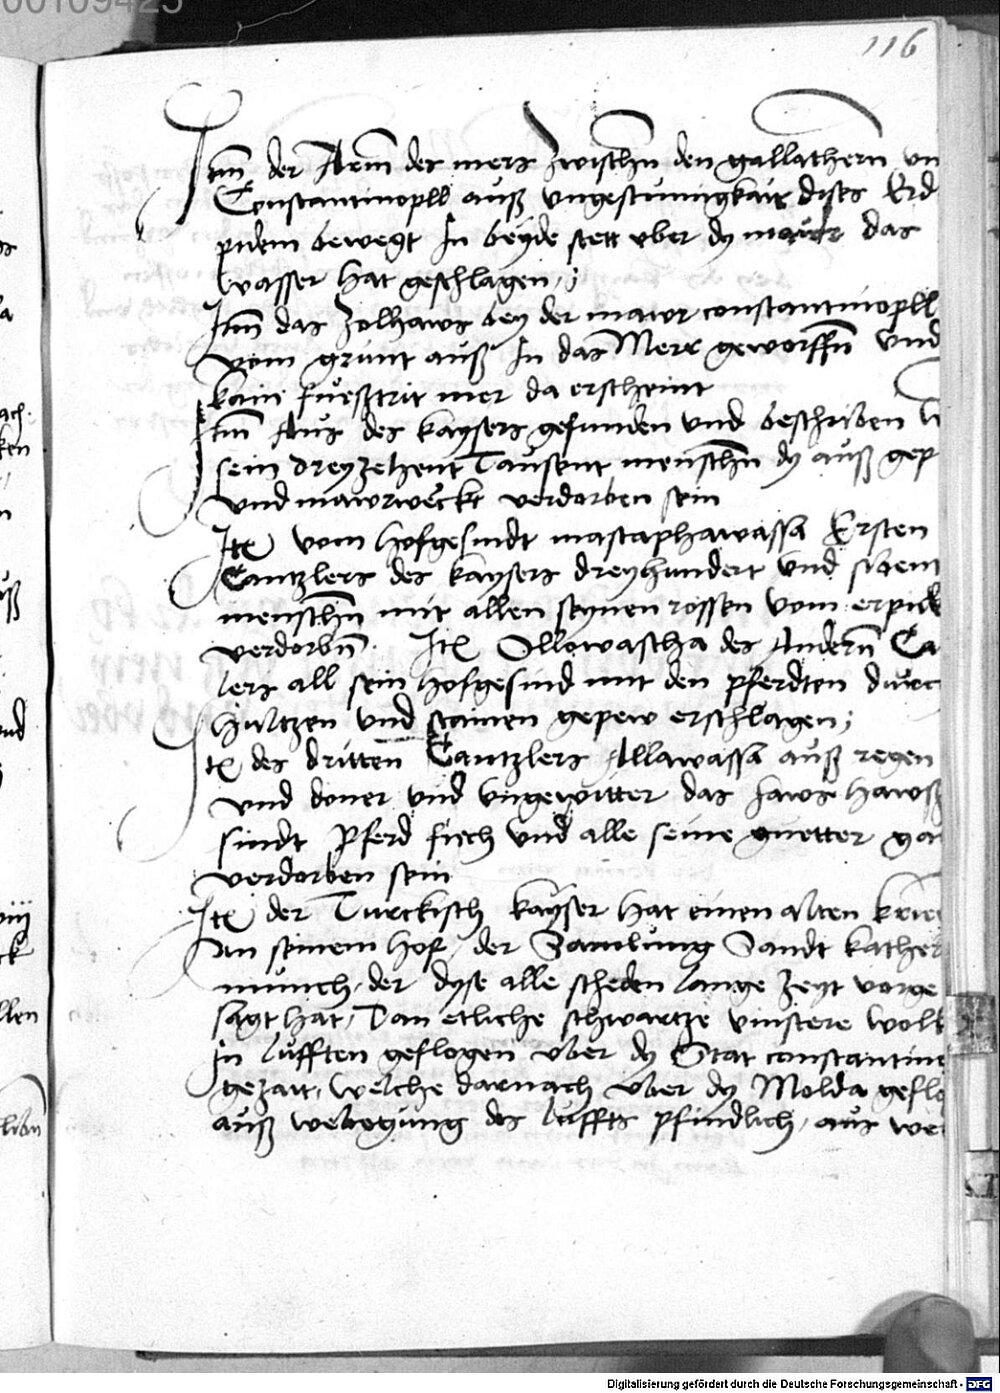 116
Item der Arm des mers zwischen den gallathern vn
Constantinopll auß vngestumigkait dises Erd
pidem bewegt In beyde stett vber dy maur das
wasser hat geschlagen ;
Item das Zolhaws bey der mawr constantinopll
vom grunt auß In das Mere geworffn vnd
kain fueßtrit mer da erscheint
Item Aus des kaysers gefunden vnd beschriben
sein dreyzehent Tausent menschn dy auß gep
vnd mawrweckt verdorben sein
Ite vom hofgesindt mastaphawassa Ersten
Cantzlers des kaysers dreyhundert vnd sibent
menschn mit allen seynen rossen vom erpid
verdorbn. Ite Ollowascha des Andern Ca
lers all sein hofgesind mit den pferdten durc
hultzen vnd stainen gepew erschlagen ;
Ite des dritten Cantzlers Allawassa auß regen
vnd doner vnd vngewitter das haws
sindt pferd fiech vnd alle seine guetter ga
verdorben sein
Ite der Turckisch kayser hat einen alten krie
an seinem hof, der Samlung Sandt kather
münch, der dyse alle scheden lange zeyt vorge
sagt hat, Dan etliche schwartze vinstere wolk
In lufften geflogen vber dy Stat constantino
gezait, welche darnach vber dy Molda geflo
auß webegung des luffts pfindlich, aus we
Digitalisierung gefördert durch die Deutsche Forschungsgemeinschaft - DFG